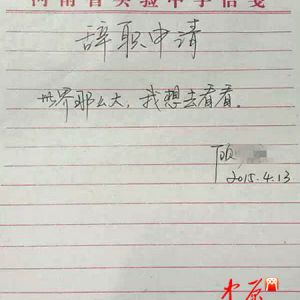 河南省实验中学信笺
辞职申请
世界那么大，我想去看看。
顾
2015.4.13
中原